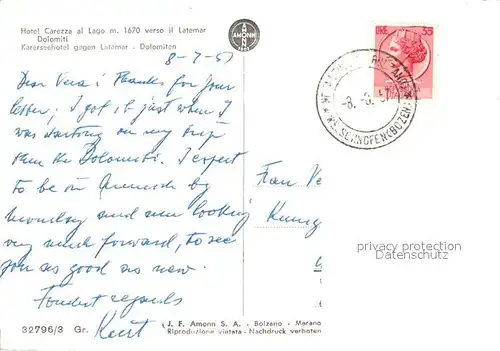 Hotel Carezza al Lago m. 1670 verso il Latemar
Dolomiti
Karerseehotel gegen Latemar - Dolomiten
AMONN
8-7-57
LIRE 35
Dear Vera! Thanks for your
letter; I got it just when I
was starting on my trip
thru the Dolomites. I expect
to be in Gmunden by
Monday and am looking
very much forward, to see
you as good as new.
Fondest regards
Kurt
Frau Ve
privacy protection
watermark
32796/3 Gr.
J. F. Amonn S. A. - Bolzano - Merano
Riproduzione vietata - Nachdruck verboten